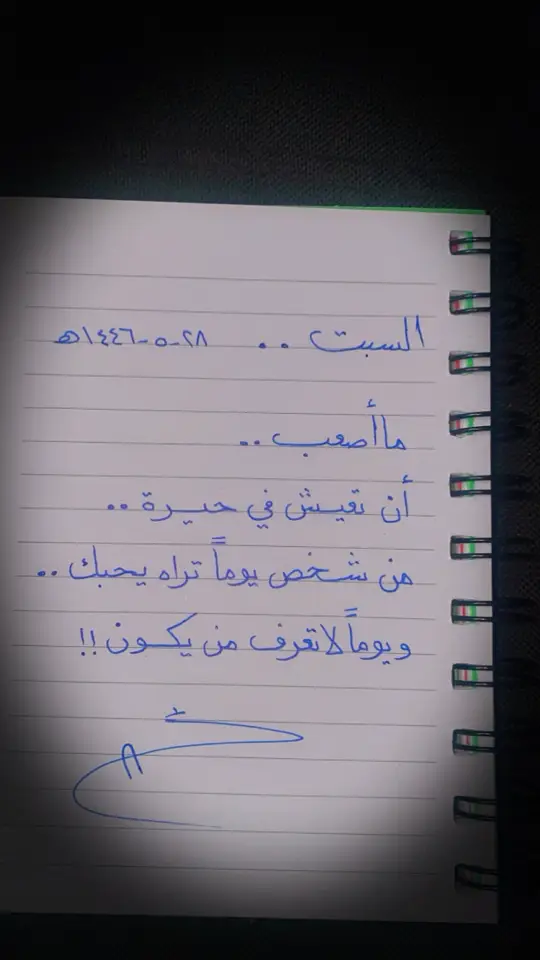 السبت .. ٢٨-٥-١٤٤٦ه
ماأصعب ..
أن تعيش في حيرة ..
من شخص يوماً تراه يحبك ..
ويوماً لاتعرف من يكون !!